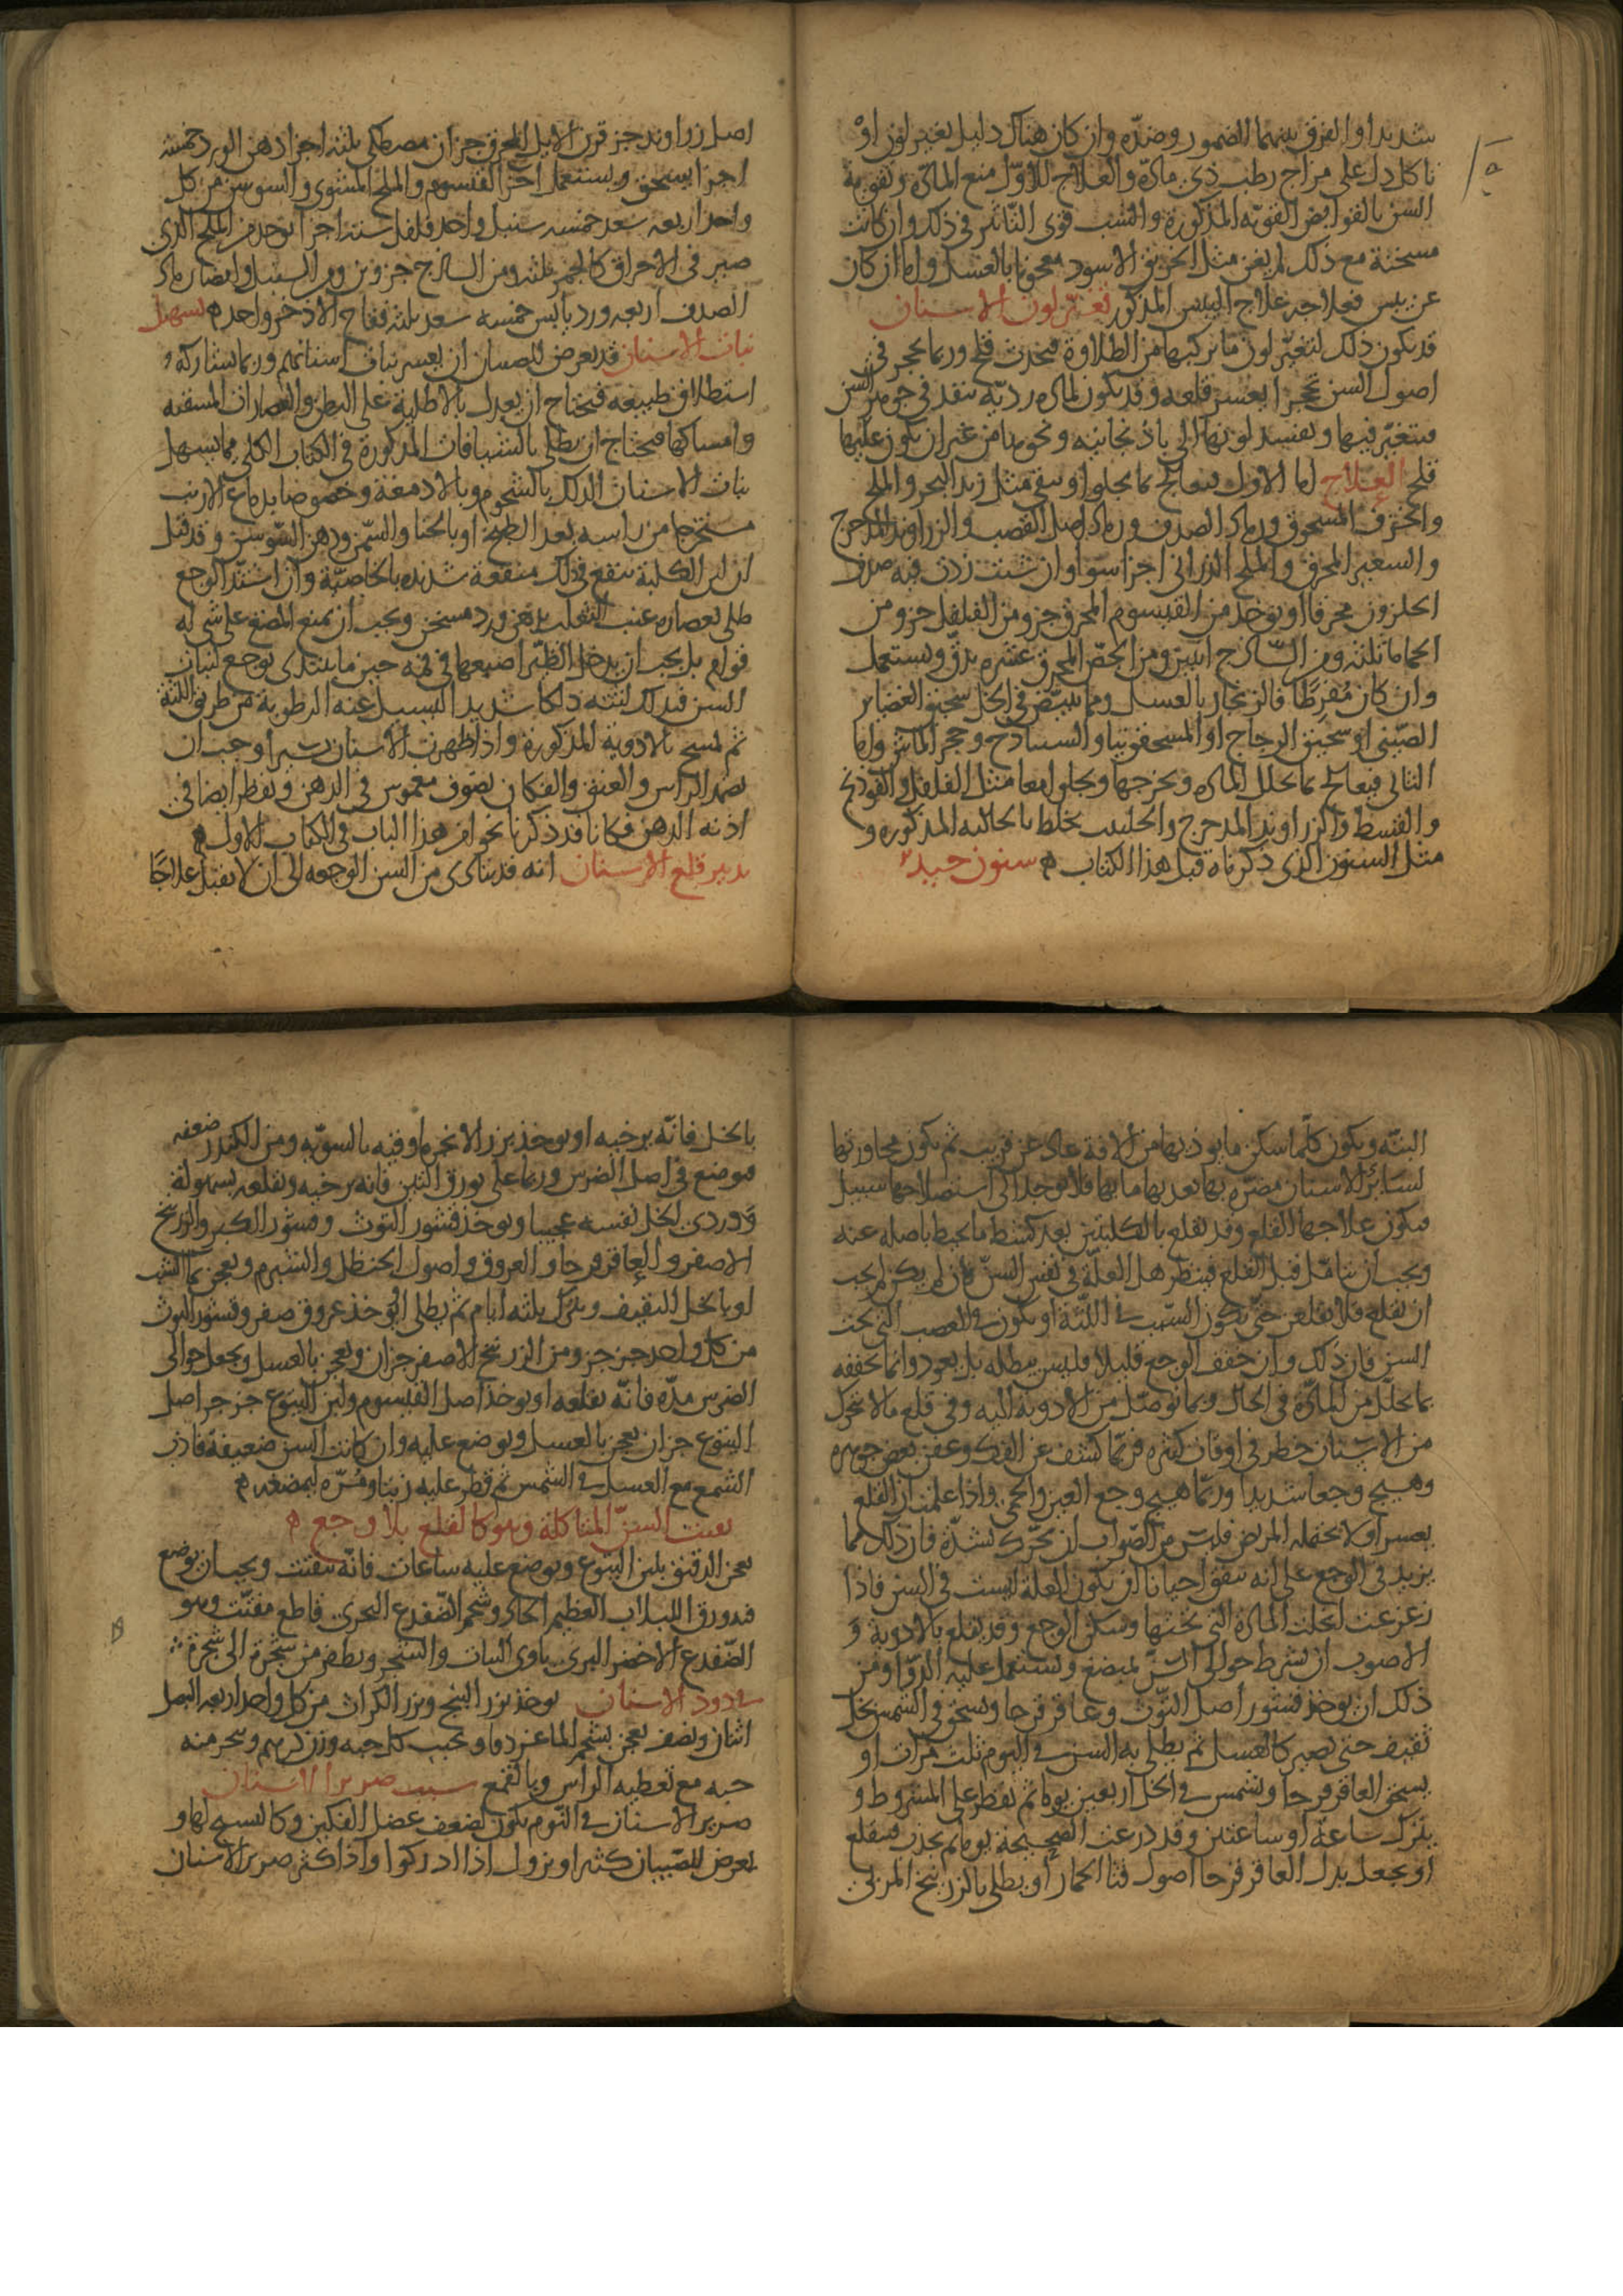 شديدا والفرق بينهما الضمور وضده وان كان هناك دليل تغير لون او
تاكل دل على مزاج رطب ذي مادة والعلاج للاول منع المادة وتقوية
السن بالقوابض القوية المذكورة والشب قوى التاثير في ذلك وان كانت
مسخنة مع ذلك لم يغن مثل الخربق الاسود معجونا بالعسل واما ان كان
عن يبس فعلاجه علاج اليبس المذكور تغير لون الاسنان
قد يكون ذلك لتغير لون ما يركبها من الطلاوة فيحدث قلح وربما تحجر في
اصول السن تحجرا يعسر قلعه وقد يكون لمادة ردية تنفذ في جوهر السن
فيتغير فيها ويفسد لونها الى باذنجانيه ونحوها من غير ان يكون عليها
قلح العلاج اما الاول فيعالج بما يجلو او ينقي مثل زبد البحر والملح
والخزف المسحوق ورماد الصدف ورماد اصل القصب والزراوند المدحرج
والسعير المحرق والملح الدراني اجزا سوا وان شئت زدت فيه صدف
الحلزون محرقا او يوخذ من القيسوم المحرق جزو من الفلفل جزو من
الحماما ثلثه ومن السادج اثنين ومن الجص المحرق عشره يدق ويستعمل
وان كان مفرطا فالزنجار بالعسل ومما يبيض في الحل سحيق الغضاير
الصيني او سحيق الزجاج او المسحقونيا والسنبادح وحجر الماس واما
الثاني فيعالج بما يحلل المادة ويخرجها ويجلو معا مثل الفلفل والفوذنج
والقسط والزراوند المدحرج والحلتيت يخلط بالجاليه المذكورة و
مثل السنون الذي ذكرناه قبل هذا الكتاب سنون جيد
اصل زراوند جز قرن الايل المحرق جزان مصطكى ثلثه اجزا دهن الورد خمسه
اجزا يسحق ويستعمل اخر القيسوم والملح المشوى والسوسن من كل
واحد اربعه سعد خمسه سنبل واحد فلفل ستة اجزا يوخذ من الملح الذي
صير في الاحراق كالجمر ثلثه ومن السادج جزوين ومن السنبل وايضا رماد
الصدف اربعه ورد يابس خمسه سعد ثلثه فقاح الاذخر واحد تسهيل
نبات الاسنان قد يعرض للصبيان ان يعسر نبات اسنانهم وربما شاركه
استطلاق طبيعه فيحتاج ان يعدل بالاطلية على البطن والعصارات المسقيه
وامساكها فيحتاج ان يطلى بالشيافات المذكورة في الكتاب الكلي مما يسهل
نبات الاسنان الدلك بالشحوم وبالادمغة وخصوصا بدماغ الارنب
مستخرجا من راسه بعد الطبخ او بالحنا والسمن ودهن السوسن وقد قيل
ان لبن الكلبة ينفع في ذلك منفعة شديده بالخاصية وان اشتد الوجع
طلى بعصاره عنب الثعلب بدهن ورد مسخن ويجب ان يمنع المضغ على شى له
قوام بل يجب ان يدخل الظير اصبعها في فمه حين ما يبتدى توجع لنبات
السن فيدلك لثته دلكا شديدا ليسيل عنه الرطوبة من طريق اللثة
ثم تمسح بالادوية المذكورة واذا ظهرت الاسنان يسيرا وجب ان
يضمد الراس والعنق والفكان بصوف مغموس في الدهن ويقطر ايضا في
اذنه الدهن وكانا قد ذكرنا نحوا من هذا الباب في الكتاب الاول
تدبير قلع الاسنان انه قد يتادى من السن الوجعه الى ان لا يقبل علاجا
البته ويكون كلما سكن ما يوذيها من الافة عاد عن قريب ثم يكون مجاورتها
لسائر الاسنان مضره بها يعديها ما بها فلا يوجد الى استصلاحها سبيل
فيكون علاجها القلع وقد تقلع بالكلبتين بعد كشط ما يحيط باصله عنه
ويجب ان يتامل قبل القلع فينظر هل العلة في نفس السن فان لم يكن لم يجب
ان تقلع فلا تقلعن حتى يكون السبب في اللثة او يكون في العصب التي تحت
السن فان ذلك وان خفف الوجع قليلا فليس يبطله بل يعود وانما يخففه
بما يحلل من المادة في الحال وبما يوصل من الادوية اليه وفي قلع ما لا يتحرك
من الاسنان خطر في اوقات كثيره فربما كشف عن الفك وعفن بعض جوهره
وهيج وجعا شديدا وربما هيج وجع العين والحمى واذا علمت ان القلع
يعسر او لا يحتمله المريض فليس من الصواب ان تحرك بشدة فان ذلك مما
يزيد في الوجع على انه يتفق احيانا ان يكون العلة ليست في السن فاذا
زعزعت انحلت المادة التي تحتها وسكن الوجع وقد يقلع بالادوية و
الاصوب ان تشرط حوالي السن بمبضع ويستعمل عليه الدوا ومن
ذلك ان يوخذ قشور اصل التوث وعاقر قرحا ويسحق في الشمس بخل
ثقيف حتى يصير كالعسل ثم يطلى به السن في اليوم ثلث مرات او
يسحق العاقر قرحا ويشمس في الخل اربعين يوما ثم يقطر على المشروط و
يترك ساعة او ساعتين وقد درعت الصحيحة يوما ثم يجذب فيقلع
او يجعل بدل العاقر قرحا اصول قثا الحمار او يطلى بالزرنيخ المربى
بالخل فانه يرخيه او يوخذ بزر الانجره وقنه بالسويه ومن الكندر ضعفه
فيوضع في اصل الضرس وربما على بورق التين فانه يرخيه ويقلعه بسهولة
ودردى الخل نفسه عجيبا ويوخذ قشور التوث وقشور الكبر والزرنيخ
الاصفر والعاقر قرحا والعروق واصول الحنظل والشبرم ويعجن بماء الشب
او بالخل الثقيف ويترك ثلثه ايام ثم يطلى او يوخذ عروق صفر وقشور التوث
من كل واحد جز جز ومن الزرنيخ الاصفر جزان ويعجن بالعسل ويجعل حوالى
الضرس مدة فانه يقلعه او يوخذ اصل القيسوم ولبن اليتوع جز جز اصل
اليتوع جزان يعجن بالعسل ويوضع عليه وان كانت السن ضعيفة فاذب
الشمع مع العسل في الشمس ثم قطر عليه زيتا ومره ليمضغه
تفتت السن المتاكلة وهو كالقلع بلا وجع
يعجن الدقيق بلبن اليتوع ويوضع عليه ساعات فانه يتفتت ويجب ان يوضع
فيه ورق اللبلاب العظيم الحاد وشحم الضفدع البحرى قاطع مفتت وهو
الضفدع الاخضر البرى ياوى النبات والشجر ويطفر من شجرة الى شجرة
في دود الاسنان يوخذ بزر البنج وبزر الكراث من كل واحد اربعه البصل
اثنان ونصف يعجن بشحم الماعز دقا ويحبب كل حبه وزن درهم ويبخر منه
حبه مع تغطيه الراس وبالقمع سبب صرير الاسنان
صرير الاسنان في النوم يكون لضعف عضل الفكين وكالتشنج لها و
يعرض للصبيان كثيرا ويزول اذا ادركوا واذا كثر صرير الاسنان